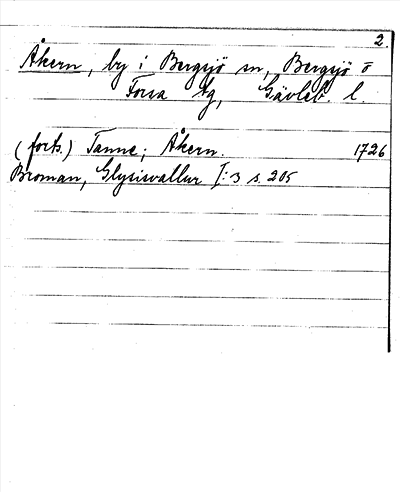 2.
Åkern, by i Bergsjö sn, Bergsjö o
Forsa tg, Gävleb. l.
(forts.) Tanne; Åkern. 1726
Broman, Glysisvallur I:3 s. 205